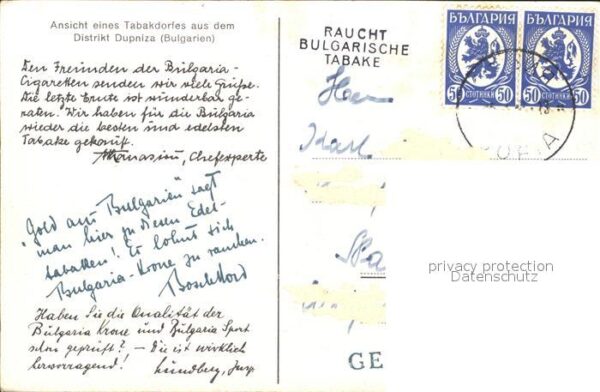 Ansicht eines Tabakdorfes aus dem
Distrikt Dupniza (Bulgarien)
Den Freunden der Bulgaria-
Cigaretten senden wir viele Grüße.
Die letzte Ernte ist wunderbar ge-
raten. Wir haben für die Bulgaria
wieder die besten und edelsten
Tabake gekauft.
Athanasiou, Chefexperte
"Gold aus Bulgarien" sagt
man hier zu diesen Edel-
tabaken! Es lohnt sich
Bulgaria-Krone zu rauchen.
Haben Sie die Qualität der
Bulgaria Krone und Bulgaria Sport
schon geprüft? – Die ist wirklich
hervorragend! Lundberg, Insp.
RAUCHT
BULGARISCHE
TABAKE
БЪЛГАРИЯ
50 СТОТИНКИ 50
БЪЛГАРИЯ
50 СТОТИНКИ 50
Herrn
Karl
privacy protection
Datenschutz
GE